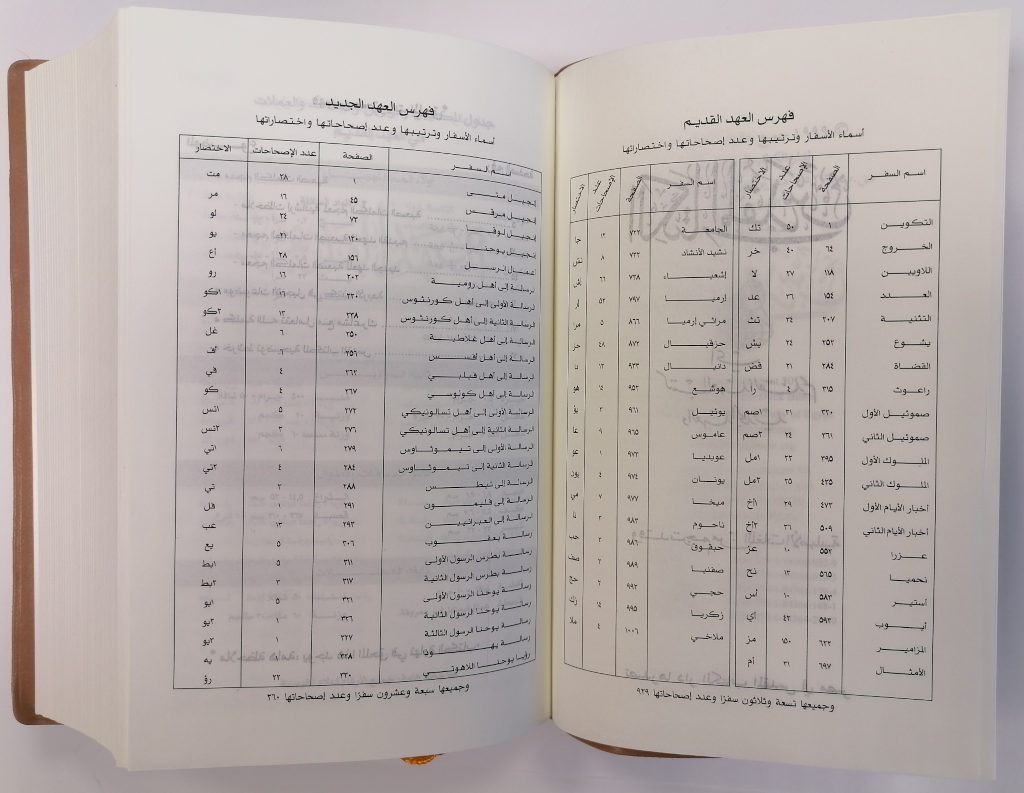 فهرس العهد القديم
أسماء الأسفار وترتيبها وعدد إصحاحاتها واختصاراتها
اسم السفر الصفحة عدد الإصحاحات الاختصار
التكوين ١ ٥٠ تك
الخروج ٦٤ ٤٠ خر
اللاويين ١١٨ ٢٧ لا
العدد ١٥٤ ٣٦ عد
التثنية ٢٠٧ ٣٤ تث
يشوع ٢٥٢ ٢٤ يش
القضاة ٢٨٤ ٢١ قض
راعوث ٣١٥ ٤ را
صموئيل الأول ٣٢٠ ٣١ ١صم
صموئيل الثاني ٣٦١ ٢٤ ٢صم
الملوك الأول ٣٩٥ ٢٢ ١مل
الملوك الثاني ٤٣٥ ٢٥ ٢مل
أخبار الأيام الأول ٤٧٣ ٢٩ ١أخ
أخبار الأيام الثاني ٥٠٩ ٣٦ ٢أخ
عزرا ٥٥٢ ١٠ عز
نحميا ٥٦٥ ١٣ نح
أستير ٥٨٣ ١٠ أس
أيوب ٥٩٣ ٤٢ أي
المزامير ٦٢٢ ١٥٠ مز
الأمثال ٦٩٧ ٣١ أم
اسم السفر الصفحة عدد الإصحاحات الاختصار
الجامعة ٧٢٢ ١٢ جا
نشيد الأنشاد ٧٣٢ ٨ نش
إشعياء ٧٣٨ ٦٦ إش
إرميا ٧٩٧ ٥٢ إر
مراثي إرميا ٨٦٦ ٥ مرا
حزقيال ٨٧٢ ٤٨ حز
دانيال ٩٣٣ ١٢ دا
هوشع ٩٥٢ ١٤ هو
يوئيل ٩٦١ ٣ يؤ
عاموس ٩٦٥ ٩ عا
عوبديا ٩٧٣ ١ عو
يونان ٩٧٤ ٤ يون
ميخا ٩٧٧ ٧ مي
ناحوم ٩٨٣ ٣ نا
حبقوق ٩٨٦ ٣ حب
صفنيا ٩٨٩ ٣ صف
حجي ٩٩٣ ٢ حج
زكريا ٩٩٥ ١٤ زك
ملاخي ١٠٠٦ ٤ ملا
وجميعها تسعة وثلاثون سفرًا وعدد إصحاحاتها ٩٢٩
فهرس العهد الجديد
أسماء الأسفار وترتيبها وعدد إصحاحاتها واختصاراتها
اسم السفر الصفحة عدد الإصحاحات الاختصار
إنجيل متى ١ ٢٨ مت
إنجيل مرقس ٤٥ ١٦ مر
إنجيل لوقا ٧٣ ٢٤ لو
إنجيل يوحنا ١٢٠ ٢١ يو
أعمال الرسل ١٥٦ ٢٨ أع
رسالة إلى أهل رومية ٢٠٢ ١٦ رو
الرسالة الأولى إلى أهل كورنثوس ٢٢٠ ١٦ ١كو
الرسالة الثانية إلى أهل كورنثوس ٢٣٨ ١٣ ٢كو
الرسالة إلى أهل غلاطية ٢٥٠ ٦ غل
الرسالة إلى أهل أفسس ٢٥٦ ٦ أف
الرسالة إلى أهل فيلبي ٢٦٢ ٤ في
الرسالة إلى أهل كولوسي ٢٦٧ ٤ كو
الرسالة الأولى إلى أهل تسالونيكي ٢٧٢ ٥ ١تس
الرسالة الثانية إلى أهل تسالونيكي ٢٧٦ ٣ ٢تس
الرسالة الأولى إلى تيموثاوس ٢٧٩ ٦ ١تي
الرسالة الثانية إلى تيموثاوس ٢٨٤ ٤ ٢تي
الرسالة إلى تيطس ٢٨٨ ٣ تي
الرسالة إلى فليمون ٢٩١ ١ فل
الرسالة إلى العبرانيين ٢٩٣ ١٣ عب
رسالة يعقوب ٣٠٦ ٥ يع
رسالة بطرس الرسول الأولى ٣١١ ٥ ١بط
رسالة بطرس الرسول الثانية ٣١٧ ٣ ٢بط
رسالة يوحنا الرسول الأولى ٣٢١ ٥ ١يو
رسالة يوحنا الرسول الثانية ٣٢٦ ١ ٢يو
رسالة يوحنا الرسول الثالثة ٣٢٧ ١ ٣يو
رسالة يهوذا ٣٢٨ ١ يه
رؤيا يوحنا اللاهوتي ٣٣٠ ٢٢ رؤ
وجميعها سبعة وعشرون سفرًا وعدد إصحاحاتها ٢٦٠